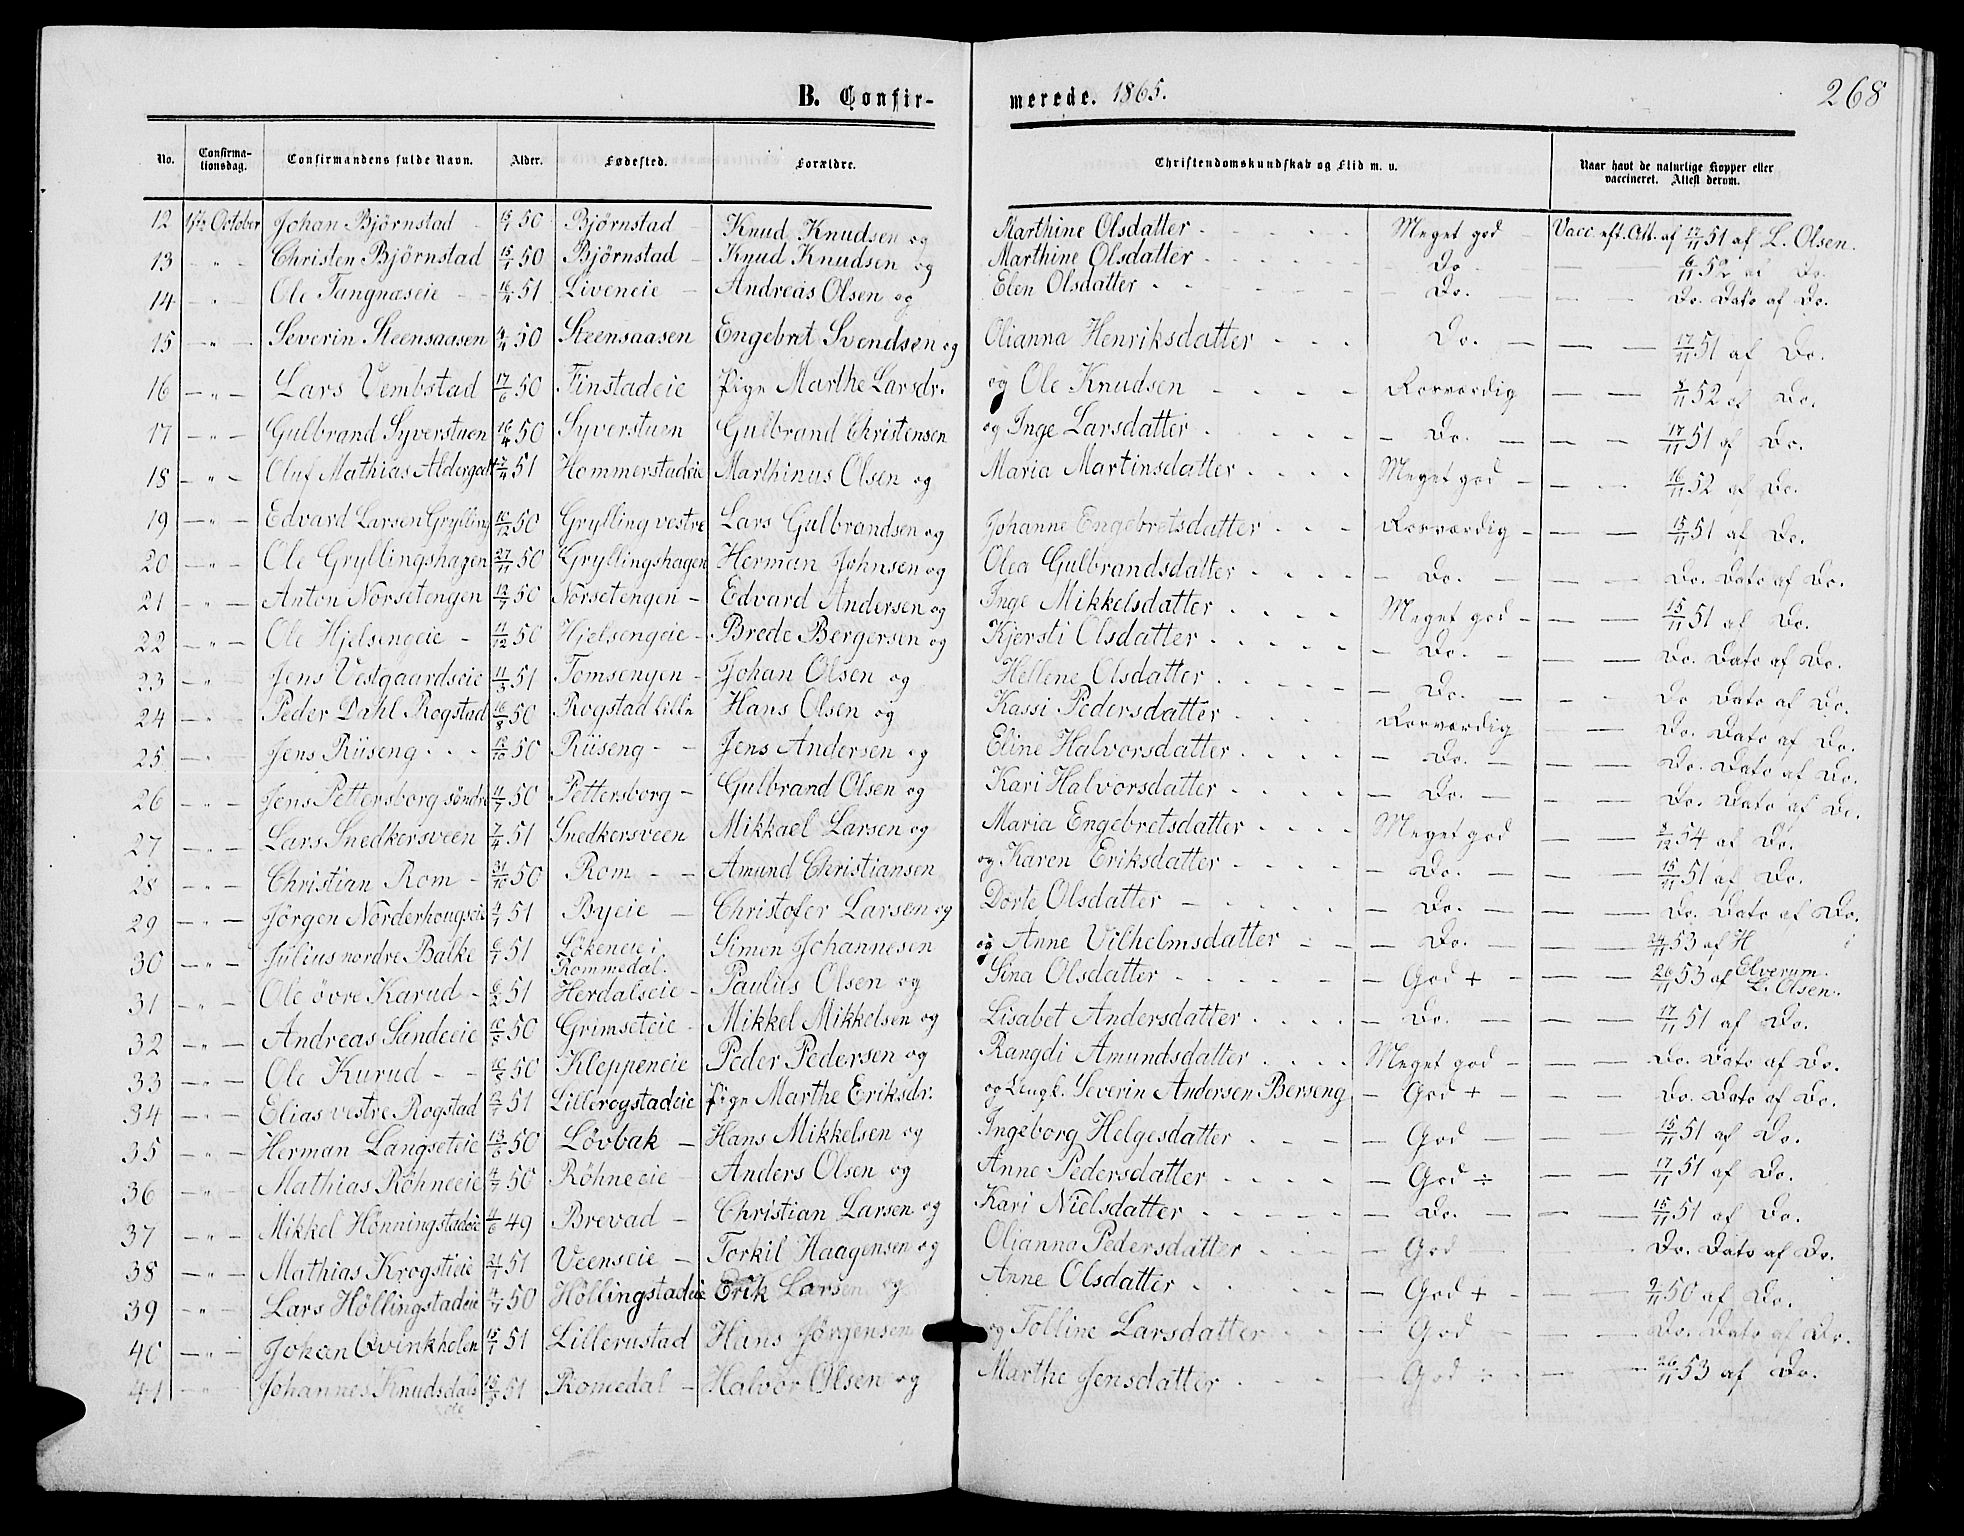 B. Confir-
merede. 1865.
268
No. Confirma-tionsdag. Confirmandens fulde Navn. Alder. Fødested. Forældre. Christendomskundskab og Flid m. v. Naar havt de naturlige Kopper eller vaccineret. Attest derom.
12 October Johan Bjørnstad 50 Bjørnstad Knud Knudsen og Marthine Olsdatter Meget god Vacc. eft. Att. af 12/11 51 af L. Olsen.
13 " Christen Bjørnstad 15/1 50 Bjørnstad Knud Knudsen og Marthine Olsdatter Do. 6/11 52 af Do.
14 " Ole Tangnæseie 16/4 51 Liveneie Andreas Olsen og Elen Olsdatter Do. Do. Dato af Do.
15 " Severin Steensaasen 4/4 50 Steensaasen Engebret Svendsen og Olianna Henriksdatter Do. 17/11 51 af Do.
16 " Lars Vembstad 17/6 50 Finstadeie Pige Marthe Larsdr. og Ole Knudsen Rosværdig 8/11 52 af Do.
17 " Gulbrand Syverstuen 16/4 50 Syverstuen Gulbrand Christensen og Inge Larsdatter Do. 17/11 51 af Do.
18 " Oluf Mathias Aldergodt 7/4 51 Hommerstadeie Marthinus Olsen og Maria Martinsdatter Meget god 16/11 52 af Do.
19 " Edvard Larsen Grylling 10/12 50 Grylling vestre Lars Gulbrandsen og Johanne Engebretsdatter Rosværdig 15/11 51 af Do.
20 " Ole Gryllingshagen 27/11 50 Gryllingshagen Herman Johnsen og Olea Gulbrandsdatter Do. Do. Dato af Do.
21 " Anton Norsetengen 12/7 50 Norsetengen Edvard Andersen og Inge Mikkelsdatter Meget god 15/11 51 af Do.
22 " Ole Hjelsengeie 11/12 50 Hjelsengeie Brede Bergersen og Kjersti Olsdatter Do. Do. Dato af Do.
23 " Jens Vestgaardseie 11/3 51 Tomsengen Johan Olsen og Hellene Olsdatter Do. Do Dato af Do.
24 " Peder Dahl Rogstad 16/8 50 Rogstad lille Hans Olsen og Kassi Pedersdatter Rosværdig Do. Dato af Do.
25 " Jens Riiseng 12/10 50 Riiseng Jens Andersen og Eline Halvorsdatter Do. Do. Dato af Do.
26 " Jens Pettersborg søndre 50 Pettersborg Gulbrand Olsen og Kari Halvorsdatter Do. Do. Dato af Do.
27 " Lars Snedkersveen 7/4 51 Snedkersveen Mikkael Larsen og Maria Engebretsdatter Meget god 8/12 54 af Do.
28 " Christian Rom 31/10 50 Rom Amund Christiansen og Karen Eriksdatter Do. 15/11 51 af Do.
29 " Jørgen Norderhougseie 51 Byeie Christofer Larsen og Dorte Olsdatter Do. Do. Dato af Do.
30 " Julius nordre Balke 6/1 51 Løkeneie i Rommedal. Simen Johannesen og Anne Vilhelmsdatter Do. 24/11 53 af H Elverum.
31 " Ole øvre Karud 6/2 51 Herdalseie Paulius Olsen og Sina Olsdatter God + 26/11 53 af L. Olsen.
32 " Andreas Sandeeie 50 Grimseteie Mikkel Mikkelsen og Lisabet Andersdatter Do. 17/11 51 af Do.
33 " Ole Kurud 16/8 50 Kleppeneie Peder Pedersen og Rangdi Amundsdatter Meget god Do. Dato af Do.
34 " Elias vestre Rogstad 12/1 51 Lillerogstadeie Pige Marthe Eriksdr. og Ungk. Severin Andersen Berseng God + Do. Dato af Do.
35 " Herman Langseteie 50 Løvbak Hans Mikkelsen og Ingeborg Helgesdatter God 15/11 51 af Do.
36 " Mathias Röhneeie 50 Röhneeie Anders Olsen og Anne Pedersdatter God ÷ 17/11 51 af Do.
37 " Mikkel Hønningstadeie 49 Brevad Christian Larsen og Kari Nielsdatter Do. 15/11 51 af Do.
38 " Mathias Krogstieie 21/1 51 Veenseie Torkil Haagensen og Olianna Pedersdatter God Do. Dato af Do.
39 " Lars Höllingstadeie 50 Höllingstadeie Erik Larsen og Anne Olsdatter God + 9/11 50 af Do.
40 " Johan Qvinkholen 15/1 51 Lillerustad Hans Jørgensen og Tolline Larsdatter God Do. Dato af Do.
41 " Johannes Knudsdalseie 51 Romedal Halvor Olsen og Marthe Jensdatter God ÷ 26/11 53 af Do.